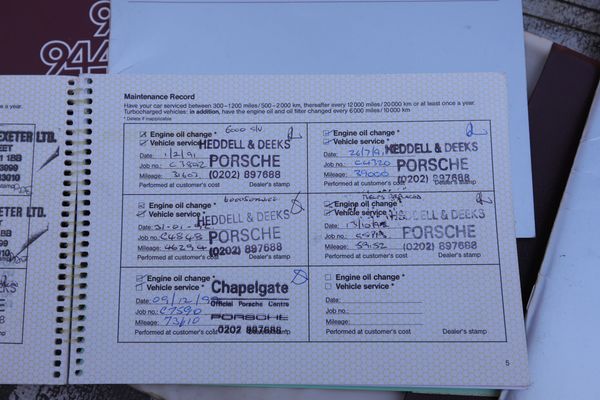 944
944
EXETER LTD.
STREET
1BB
3999
33010
stamp
ETER LTD.
Maintenance Record
Have your car serviced between 300–1200 miles/500–2000 km, thereafter every 12000 miles/20000 km or at least once a year.
Turbocharged vehicles: in addition, have the engine oil and oil filter changed every 6000 miles/10000 km
* Delete if inapplicable
Engine oil change *
Vehicle service *
Date: 1/2/91
Job no.:
Mileage:
Performed at customer's cost
Dealer's stamp
HEDDELL & DEEKS
PORSCHE
(0202) 897688
Engine oil change *
Vehicle service *
Date:
Job no.: C4320
Mileage: 39000
Performed at customer's cost
Dealer's stamp
HEDDELL & DEEKS
PORSCHE
(0202) 897688
Engine oil change *
Vehicle service *
Date:
Job no.: C4848
Mileage: 46294
Performed at customer's cost
Dealer's stamp
HEDDELL & DEEKS
PORSCHE
(0202) 897688
Engine oil change *
Vehicle service *
Date:
Job no.:
Mileage:
Performed at customer's cost
Dealer's stamp
HEDDELL & DEEKS
PORSCHE
(0202) 897688
Engine oil change *
Vehicle service *
Date:
Job no.: C7590
Mileage:
Performed at customer's cost
Dealer's stamp
Chapelgate
Official Porsche Centre
PORSCHE
0202 897688
Engine oil change *
Vehicle service *
Date:
Job no.:
Mileage:
Performed at customer's cost
Dealer's stamp
5